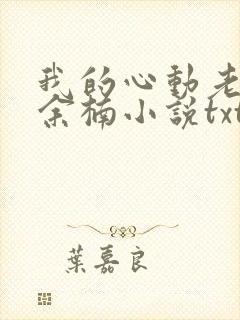 我的心動老
余楠小說txt
葉嘉良